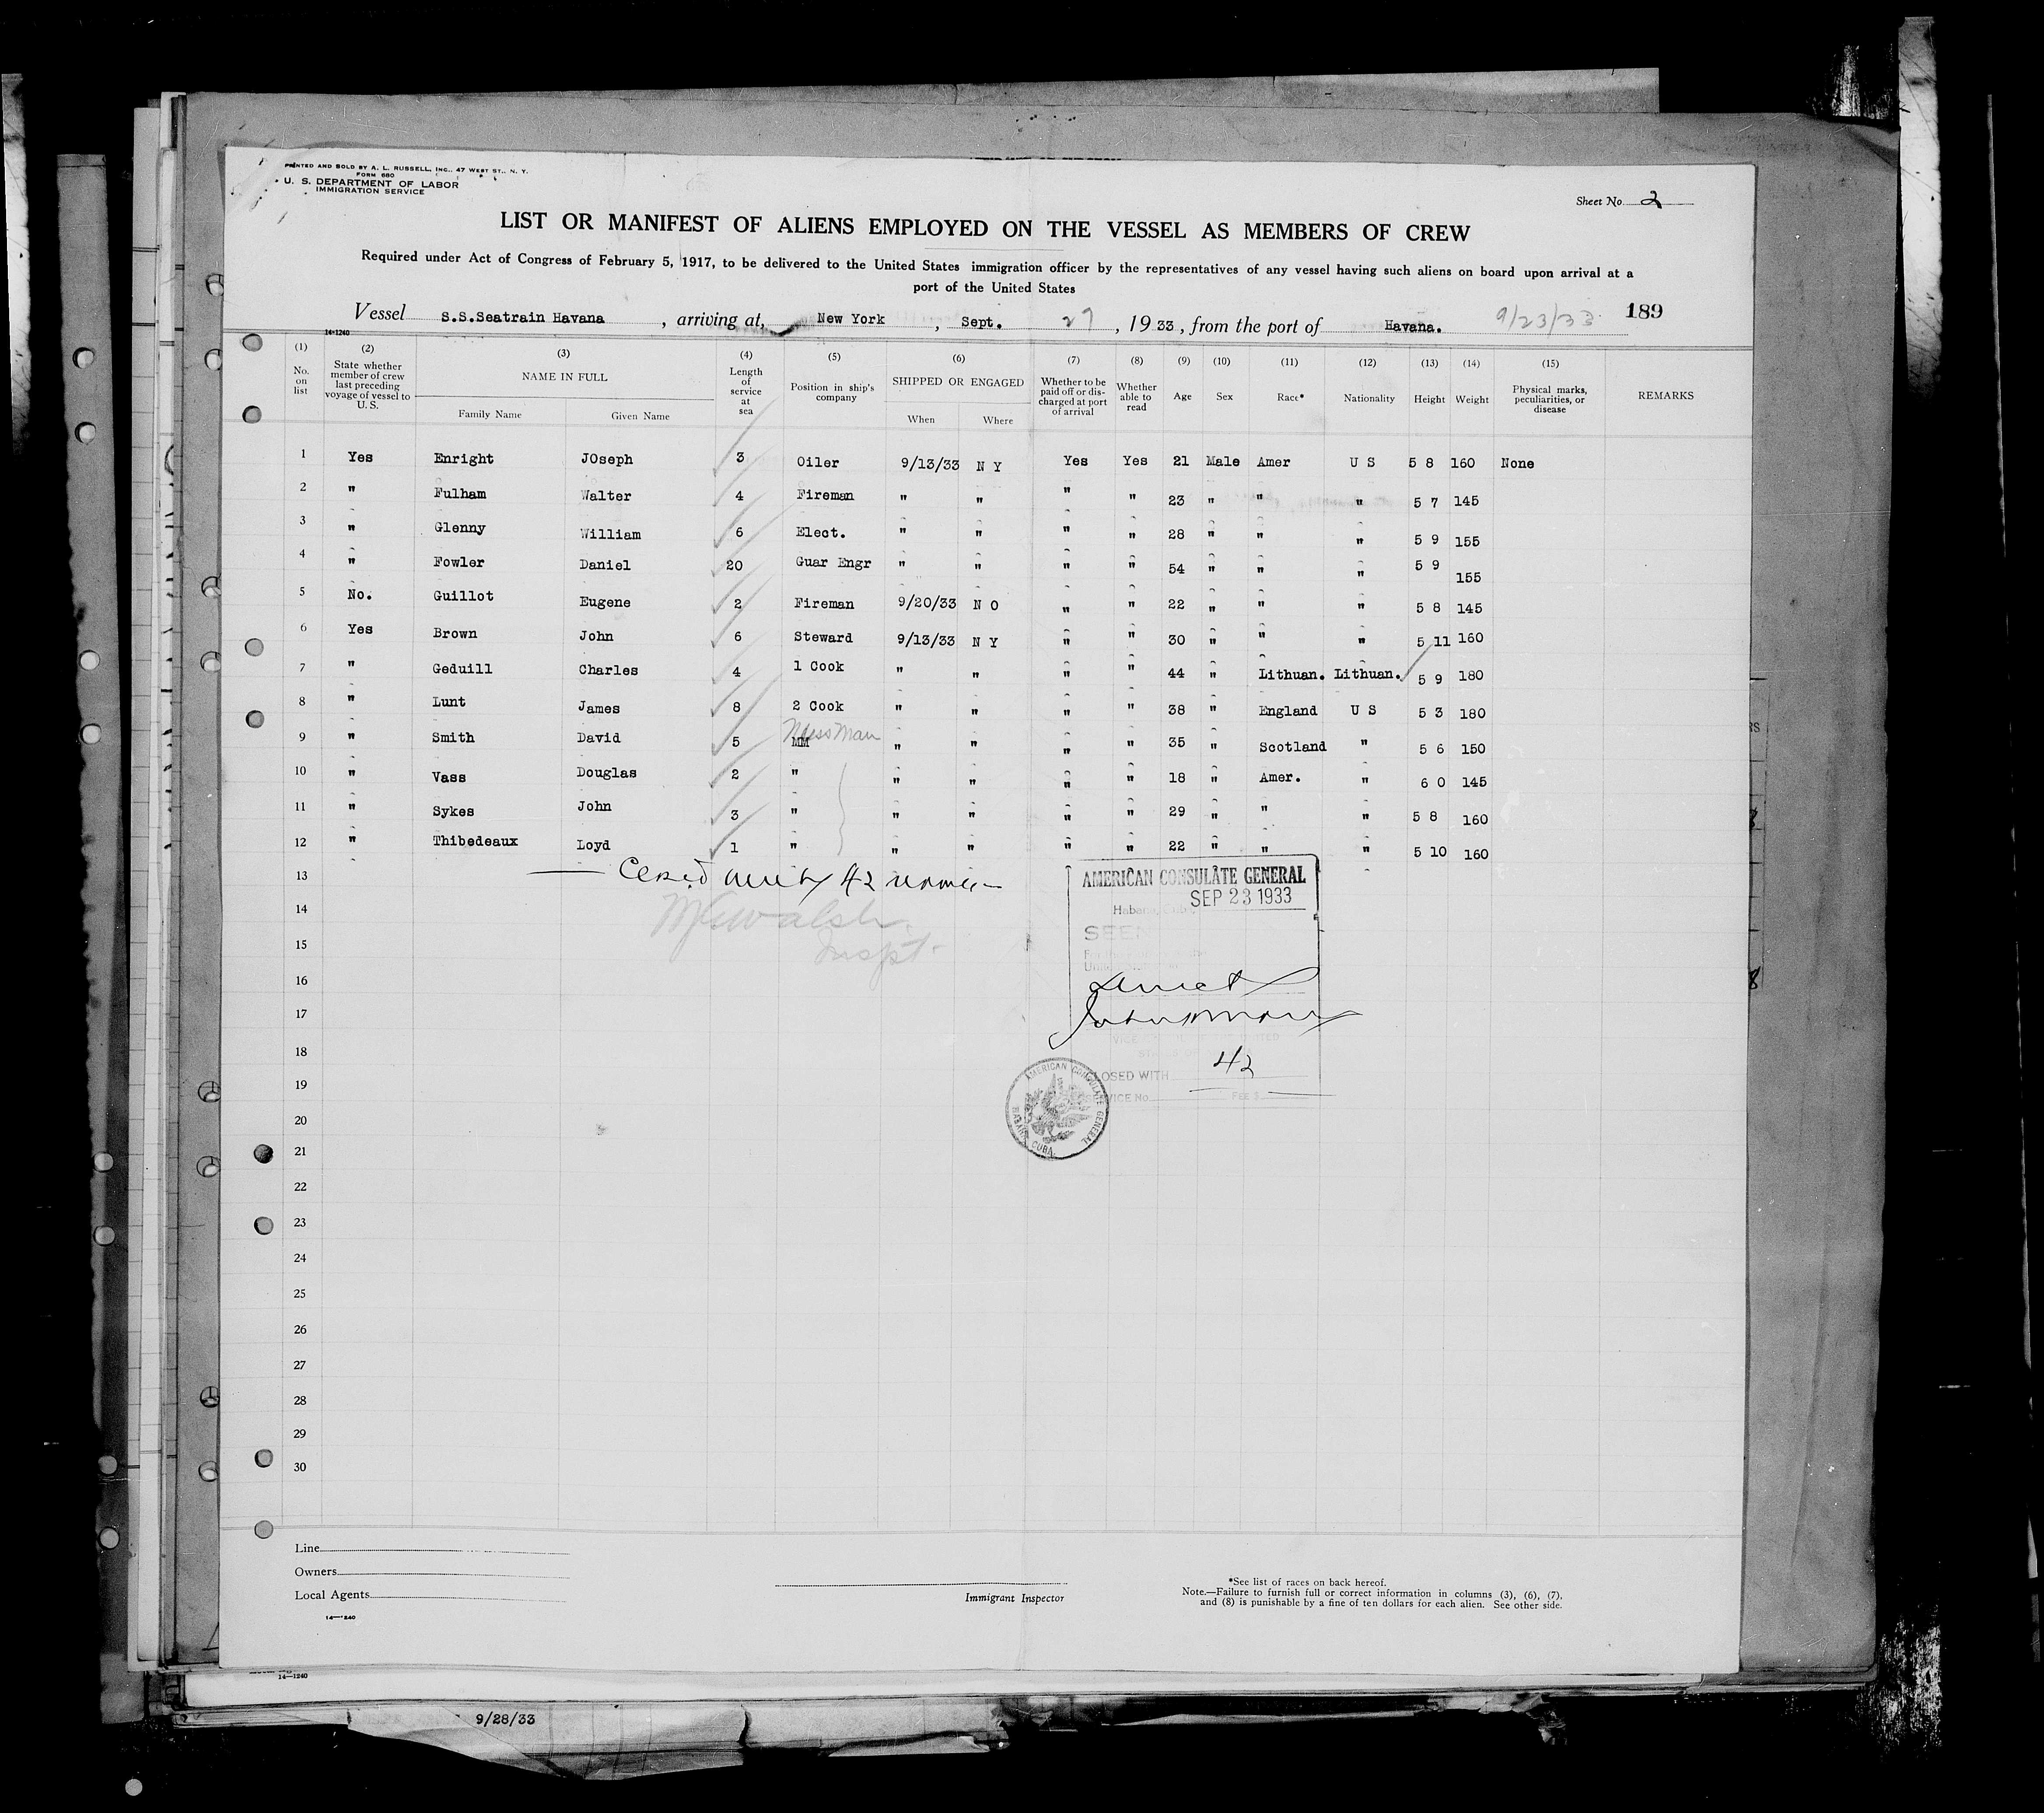 PRINTED AND SOLD BY A. L. RUSSELL, INC., 47 WEST ST., N. Y.
FORM 680
U. S. DEPARTMENT OF LABOR
IMMIGRATION SERVICE
Sheet No. 2
LIST OR MANIFEST OF ALIENS EMPLOYED ON THE VESSEL AS MEMBERS OF CREW
Required under Act of Congress of February 5, 1917, to be delivered to the United States immigration officer by the representatives of any vessel having such aliens on board upon arrival at a
port of the United States
Vessel S.S.Seatrain Havana, arriving at, New York, Sept. 27, 1933, from the port of Havana. 9/23/33 189
14-1240
(1) (2) (3) (4) (5) (6) (7) (8) (9) (10) (11) (12) (13) (14) (15)
No. on list State whether member of crew last preceding voyage of vessel to U. S. NAME IN FULL Family Name Given Name Length of service at sea Position in ship's company SHIPPED OR ENGAGED When Where Whether to be paid off or discharged at port of arrival Whether able to read Age Sex Race* Nationality Height Weight Physical marks, peculiarities, or disease REMARKS
1 Yes Enright JOseph 3 Oiler 9/13/33 N Y Yes Yes 21 Male Amer U S 5 8 160 None
2 " Fulham Walter 4 Fireman " " " " 23 " " " 5 7 145
3 " Glenny William 6 Elect. " " " " 28 " " " 5 9 155
4 " Fowler Daniel 20 Guar Engr " " " " 54 " " " 5 9 155
5 No. Guillot Eugene 2 Fireman 9/20/33 N O " " 22 " " " 5 8 145
6 Yes Brown John 6 Steward 9/13/33 N Y " " 30 " " " 5 11 160
7 " Geduill Charles 4 1 Cook " " " " 44 " Lithuan. Lithuan. 5 9 180
8 " Lunt James 8 2 Cook " " " " 38 " England U S 5 3 180
9 " Smith David 5 MM Mess Man " " " " 35 " Scotland " 5 6 150
10 " Vass Douglas 2 " " " " " 18 " Amer. " 6 0 145
11 " Sykes John 3 " " " " " 29 " " " 5 8 160
12 " Thibedeaux Loyd 1 " " " " " 22 " " " 5 10 160
13
42
14
Walsh
Inspt.
15
16
17
18
19
20
21
22
23
24
25
26
27
28
29
30
AMERICAN CONSULATE GENERAL
SEP 23 1933
Habana, Cuba
SEEN
CLOSED WITH 42
SERVICE No. FEE $
AMERICAN CONSULATE GENERAL
HABANA, CUBA.
Line
Owners
Local Agents
14-1240
Immigrant Inspector
*See list of races on back hereof.
Note.—Failure to furnish full or correct information in columns (3), (6), (7),
and (8) is punishable by a fine of ten dollars for each alien. See other side.
14-1240
9/28/33